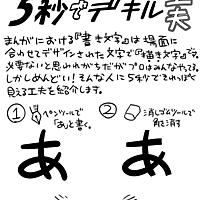 5秒でデキル工夫
まんがにおける『書き文字』は場面に
合わせてデザインされた文字で『描き文字』です。
必要ないと思われがちだがプロはみんなやってる。
しかしめんどい!そんな人に5秒でそれっぽく
見える工夫を紹介します。
① ペンツールで
「あ」と書く。
② 消しゴムツールで
角を消す
あ あ